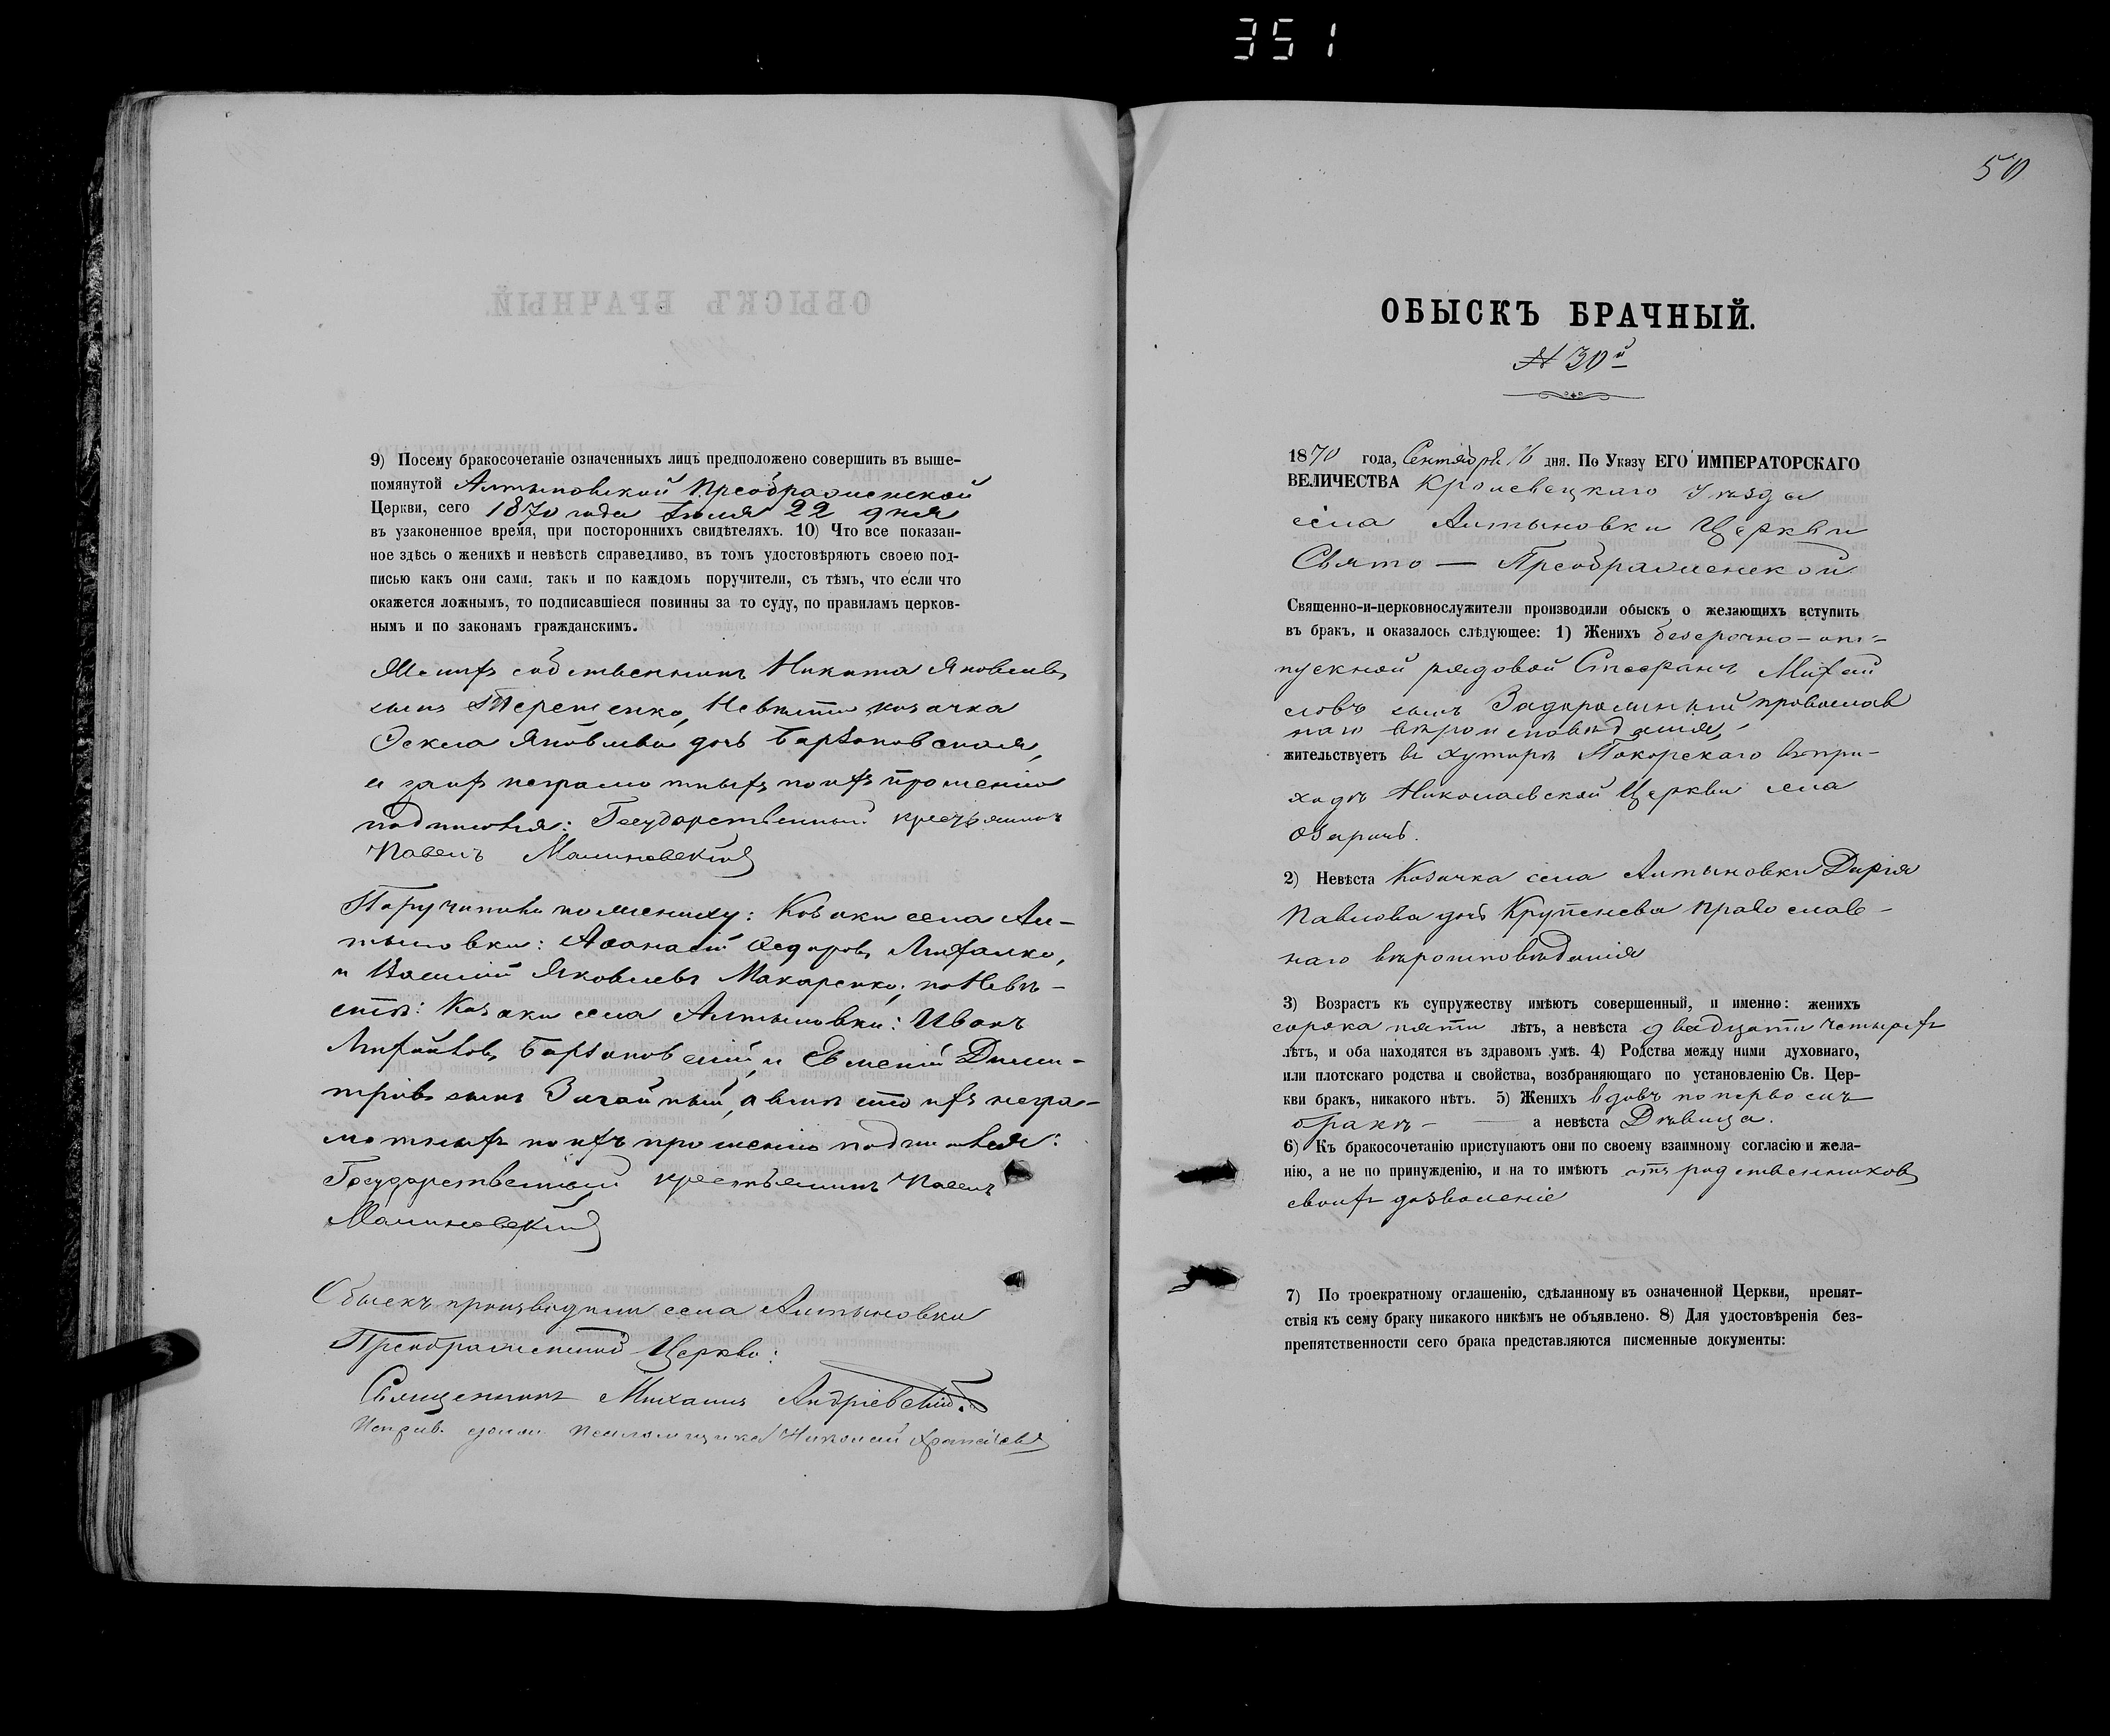 351
9) Посему бракосочетаніе означенныхъ лицъ предположено совершить въ выше-
помянутой Алтыновской Преображенской
Церкви, сего 1870 года Іюля 22 дня
въ узаконенное время, при постороннихъ свидѣтеляхъ. 10) Что все показан-
ное здѣсь о женихѣ и невѣстѣ справедливо, въ томъ удостовѣряютъ своею под-
писью какъ они сами, такъ и по каждомъ поручители, съ тѣмъ, что если что
окажется ложнымъ, то подписавшіеся повинны за то суду, по правиламъ церков-
нымъ и по законамъ гражданскимъ.
Женихъ собственникъ Никита Яковлевъ
сынъ Терещенко, Невѣста козачка
Яковлева дочь
а за ихъ неграмотныхъ по ихъ прошенію
подписался: Государственный крестьянинъ
Павелъ Малиновскій
Поручители по жениху: Козаки села Ал-
тыновки: Аѳанасій Ѳедоровъ
и Василій Яковлевъ Макаренко; по Невѣ-
стѣ: Козаки села Алтыновки: Иванъ
и Евменій Дими-
тріевъ сынъ а вмѣсто ихъ негра-
мотныхъ по ихъ прошенію подписался:
Государственный крестьянинъ Павелъ
Малиновскій
Обыскъ производили села Алтыновки
Преображенской Церкви:
Священникъ Михаилъ Андріевскій
Исправ. должн. Псаломщика Николай
50
ОБЫСКЪ БРАЧНЫЙ.
№ 30й
1870 года, Сентября 16 дня. По Указу ЕГО ИМПЕРАТОРСКАГО
ВЕЛИЧЕСТВА Кролевецкаго Уѣзда
села Алтыновки Церкви
Свято — Преображенской
Священно-и-церковнослужители производили обыскъ о желающихъ вступить
въ бракъ, и оказалось слѣдующее: 1) Женихъ безсрочно-от-
пускной рядовой Стефанъ Михай
ловъ сынъ Задорожный православ
наго вѣроисповѣданія,
жительствуетъ въ хуторѣ Покорскаго въ при-
ходѣ Николаевской Церкви села
Озаричъ.
2) Невѣста Козачка села Алтыновки Дарія
Павлова дочь Крупенева православ-
наго вѣроисповѣданія
3) Возрастъ къ супружеству имѣютъ совершенный, и именно: женихъ
сорока пяти лѣтъ, а невѣста двадцати четырехъ
лѣтъ, и оба находятся въ здравомъ умѣ. 4) Родства между ними духовнаго,
или плотскаго родства и свойства, возбраняющаго по установленію Св. Цер-
кви бракъ, никакого нѣтъ. 5) Женихъ вдовъ по первомъ
бракѣ — а невѣста Дѣвица.
6) Къ бракосочетанію приступаютъ они по своему взаимному согласію и жела-
нію, а не по принужденію, и на то имѣютъ отъ родственниковъ
своихъ дозволеніе
7) По троекратному оглашенію, сдѣланному въ означенной Церкви, препят-
ствія къ сему браку никакого никѣмъ не объявлено. 8) Для удостовѣренія без-
препятственности сего брака представляются писменные документы: